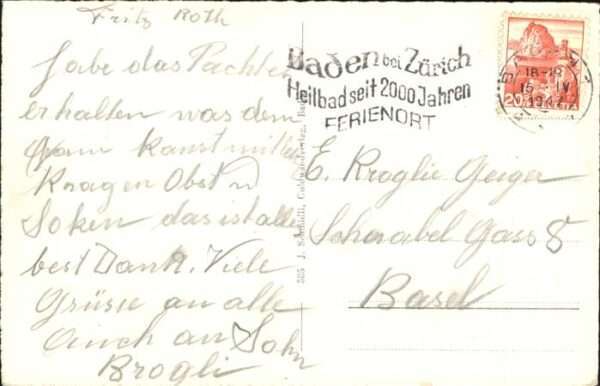 Fritz Roth
Habe das Packten
erhalten was dem
kanst mit
Kragen Obst u
Soken das ist alles
best Dank. Viele
Grüsse an alle
Auch an Sohn
Brogli
Baden bei Zürich
Heilbad seit 2000 Jahren
FERIENORT
BADEN
18-19
15 IV
1947
20
E. Kroglie Geiger
Schnabel Gass 8
Basel